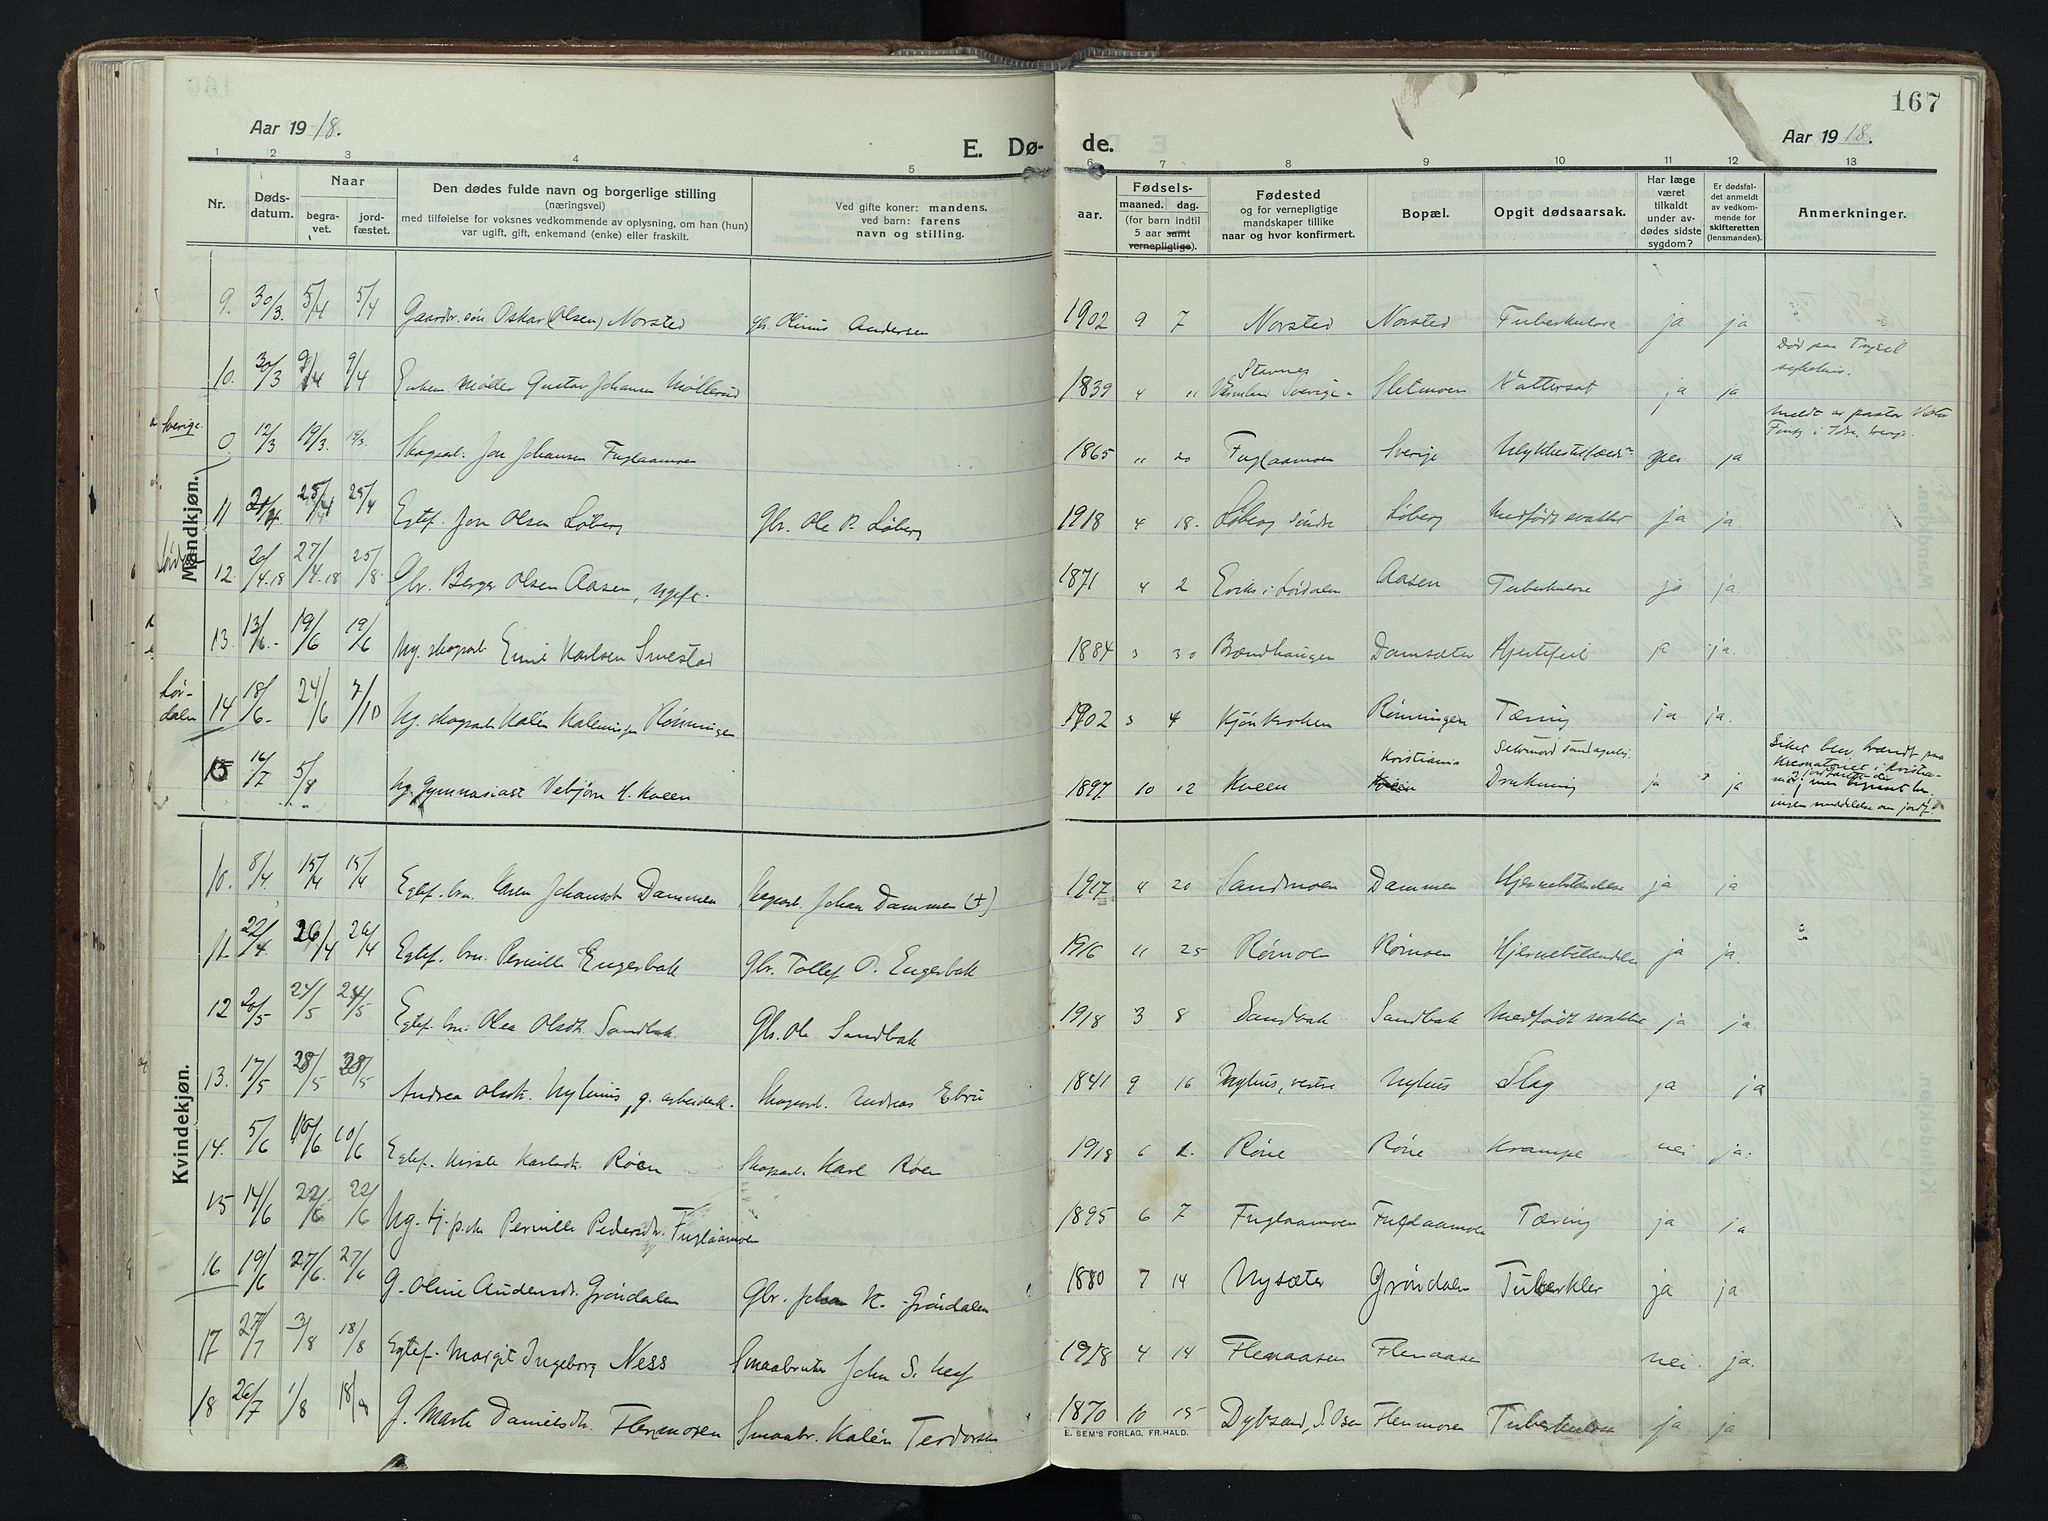 167
Aar 19 18.
E. Dø- de.
Aar 19 18.
1 2 3 4 5 6 7 8 9 10 11 12 13
Nr.
Døds-
datum.
Naar
begra-
vet.
jord-
fæstet.
Den dødes fulde navn og borgerlige stilling
(næringsvei)
med tilføielse for voksnes vedkommende av oplysning, om han (hun)
var ugift, gift, enkemand (enke) eller fraskilt.
Ved gifte koner: mandens,
ved barn: farens
navn og stilling.
aar.
Fødsels-
maaned. dag.
(for barn indtil
5 aar samt
vernepligtige).
Fødested
og for vernepligtige
mandskaper tillike
naar og hvor konfirmert.
Bopæl.
Opgit dødsaarsak.
Har læge
været
tilkaldt
under av-
dødes sidste
sygdom?
Er dødsfal-
det anmeldt
av vedkom-
mende for
skifteretten
(lensmanden).
Anmerkninger.
Mandkjøn.
9. 30/3. 5/4 5/4 Gaardbr. søn Oskar (Olsen) Norsted gbr. Olinus Andersen 1902 9 7 Norsted Norsted Tuberkulose ja ja
Død paa Trysil
sykehus.
10. 30/3 9/4 9/4 Enkem. Møller Gustav Johansen Møllerud 1839 4 11 Stavnes
Vermland Sverige Sletmoen Nattersot ja ja
Sverige.
0. 12/3 19/3. 19/3. Skogsarb. Jon Johansen Fuglaamoen 1865 11 20 Fuglaamoen Sverige Ulykkestilfælde ja
Meldt av pastor
i Idre, Sverige.
11 21/4. 25/4 25/4 Egtef. Jon Olsen Løberg Gbr. Ole P. Løberg 1918 4 18. Løberg søndre Løberg Medfødt svakhet ja ja
12. 20/4.18 27/4.18 25/8. Gbr. Berger Olsen Aasen, ugift. 1871 4 2 i Lørdalen Aasen Tuberkulose ja ja
13. 13/6.- 19/6 19/6 Ug. skogsarb. Emil Karlsen Smestad 1884 3 30 Brændhaugen Damsæter Hjertefeil ja ja
Lør-
dalen
14 18/6.- 24/6 7/10 Ug. skogsarb. Kalén Rønningen 1902 3 4 Kjønkroken Rønningen Tæring ja ja.
15 16/7 5/8 Ug. Gymnasiast Vebjørn H. Kveen 1897 10 12 Kveen Kristiania Selvmord
Drukning ja ? ja
Liket blev brændt paa
Krematoriet i Kristia-
ingen meddelelse om jordf.
Kvindekjøn.
10. 8/4. 15/4 15/4 Egtef. brn. Karen Johansdt Dammen Skogsarb. Johan Dammen (+) 1917 4 20 Sandmoen Dammen Hjernebetændelse ja ja
11. 22/4. 26/4 26/4 Egtef. brn. Pernille Engerbak Gbr. Tollef O. Engerbak 1916 11 25 Rømoen Rømoen Hjernebetændelse ja ja.
12 20/5 24/5 24/5 Egtef. brn. Olea Olsdt. Sandbak Gbr. Ole Sandbak 1918 3 8 Sandbak Sandbak Medfødt svakhet ja ja
13. 17/5 28/5 28/5 Andrea Olsdt. Nyhuus, g. arbeidersk. Skogsarb. Andreas Ebru 1841 9 16 Nyhus, vestre Nyhus Slag ja ja
14. 5/6 10/6 10/6 Egtef. Kirsti Karlsdt. Røen Skogsarb. Karl Røen 1918 6 2. Røne Røne Krampe nei ja.
15 14/6 22/6 22/6 Ug. tj.p. Pernille Pedersdt. Fuglaamoen 1895 6 7 Fuglaamoen Fuglaamoen Tæring ja ja
16 19/6 27/6. 27/6 G. Oline Andersdt. Grøndalen Gbr. Johan K. Grøndalen 1880 7 14 Nysæter Grøndalen Tuberkler ja ja
17 27/7 3/8 18/8 Egtef. Margit Ingeborg Ness Smaabruker John S. Ness 1918 4 14 Flenaasen Flenaasen nei ja.
18 26/7 1/8 18/8 G. Marte Danielsdt. Flenmoen Smaabr. Kalén Teodorsen 1870 10 15 Dybsand, S. Osen Flenmoen Tuberkulose ja ja
E. SEM'S FORLAG, FR.HALD.